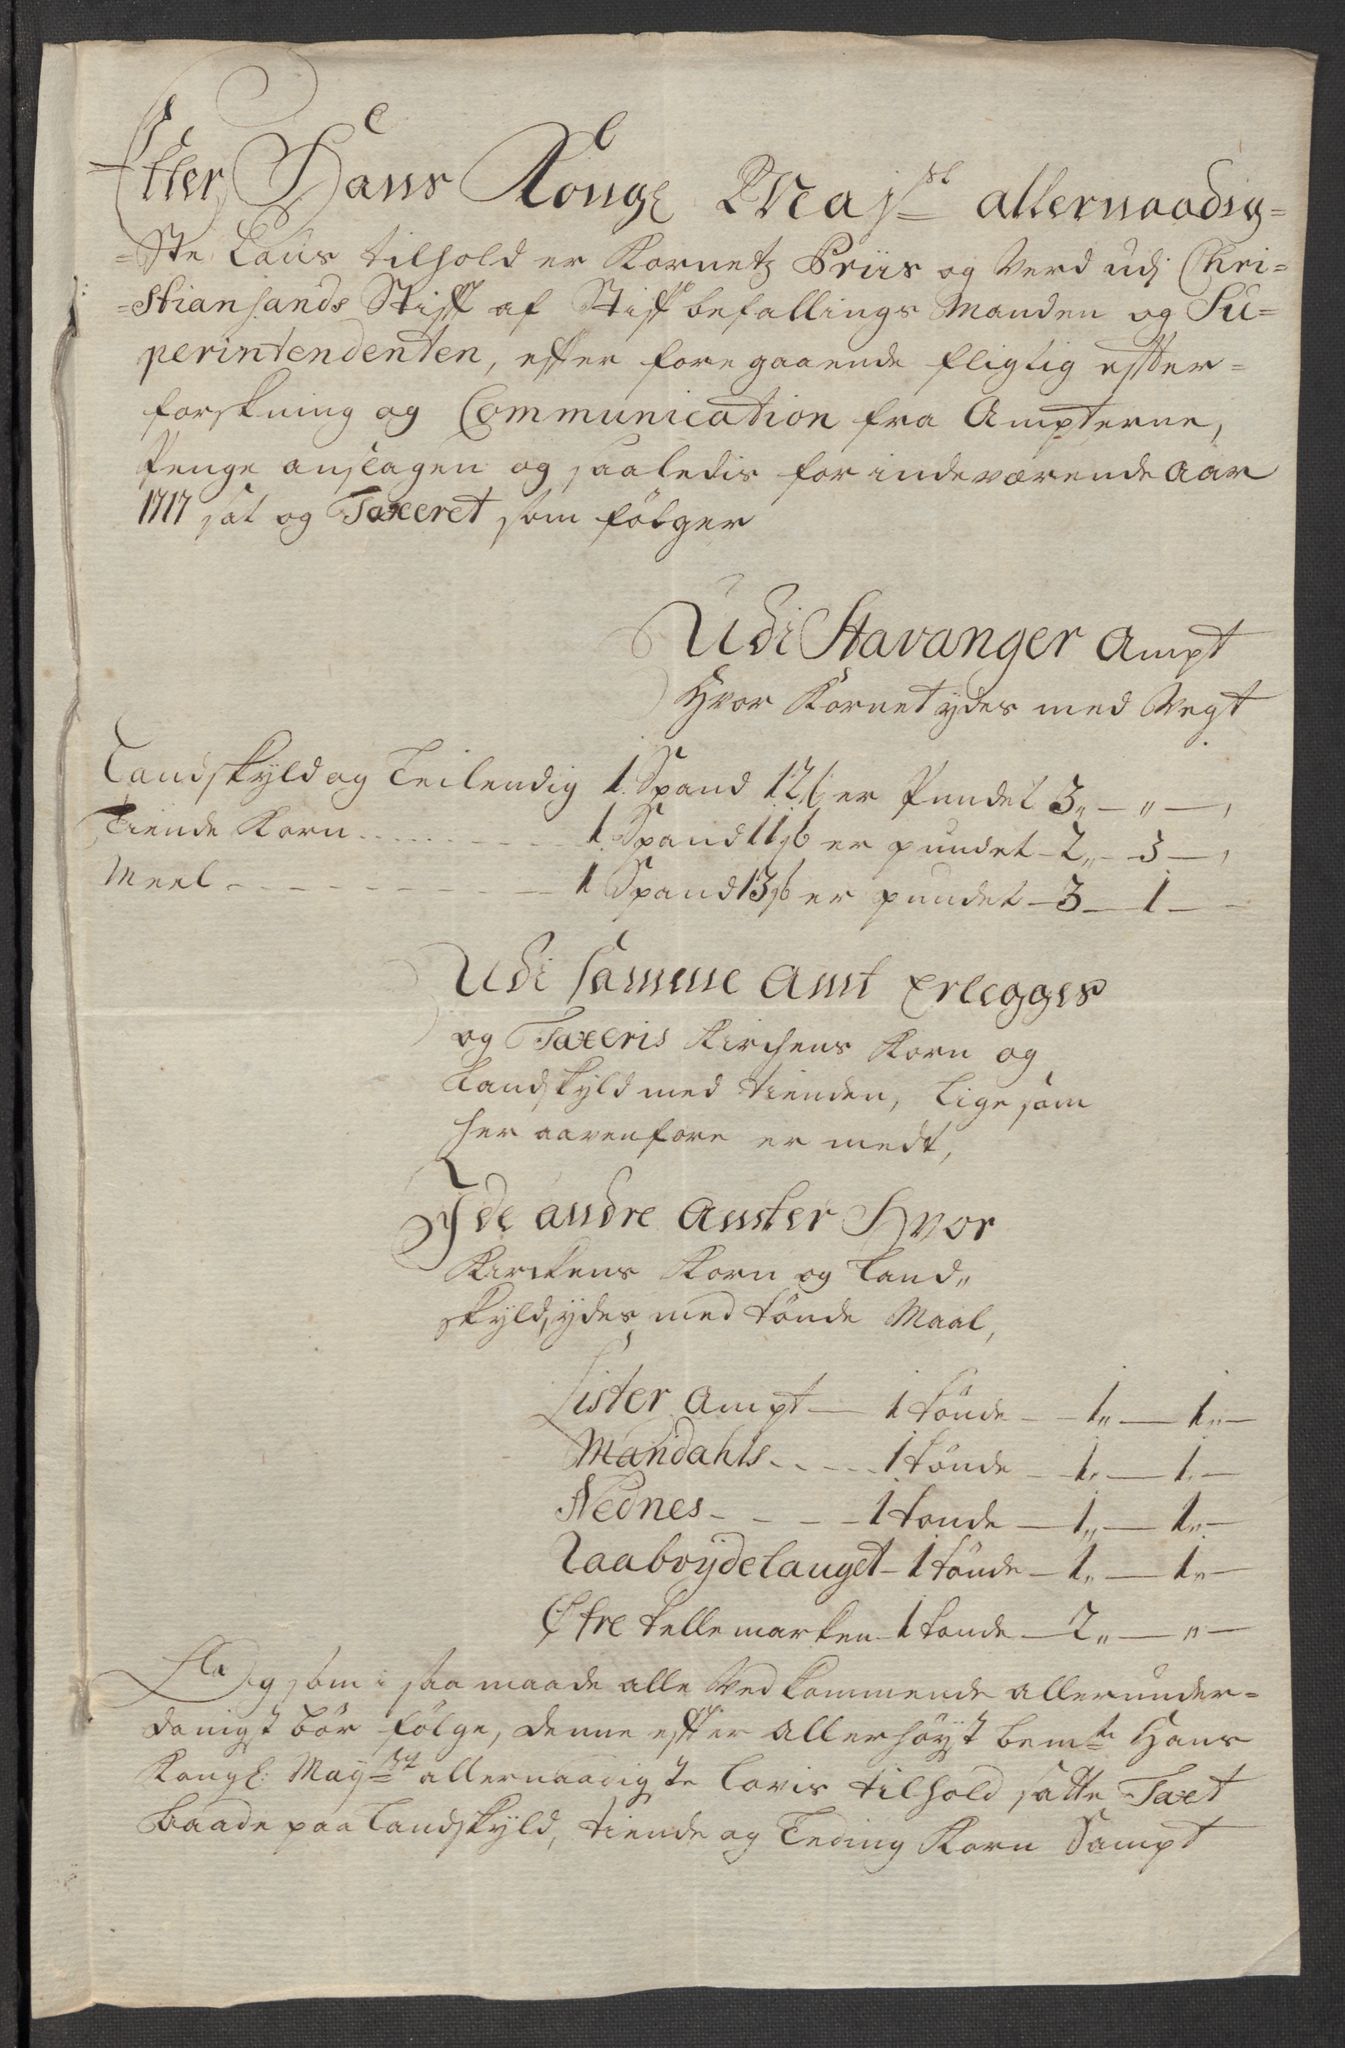 Efter Hans Kongl Maj:st allernaadig=
=ste Laus tilhold er Kornetz Priis og Verd udj Chri=
=stiansands Stift af Stiftbefallings Manden og Su=
perintendenten, efter foregaaende fligtig effter=
forskning og Communication fra Ampterne,
Penge anslagen og saaledis for indeværende aar
1717 sat og Taxeret som følger
Udi Stavanger Ampt
Hvor Kornet ydes med Vegt
Landskyld og Leilendig 1 Spand 12 ß er Pundet 3 „ — „ —
Tiende Korn . . . . 1 Spand 11 ß er pundet — 2 „ — 3 —
Meel - - - - 1 Spand 13 ß er pundet — 3 — 1 —
Udi samme Amt Erlegges
og Taxeris Kirchens Korn og
Landskyld med tienden, Lige som
her aavenfore er meldt,
J de andre Amter Hvor
Kirckens Korn og Land„
skyld, ydes med tønde Maal,
Lister Ampt — 1 tønde — 1 „ — 1 „ —
Mandahls - - - - 1 tønde — 1 „ — 1 „ —
Nednes - - - - 1 tonde — 1 „ — 1 „ —
Raaboydelauget - 1 tønde — 1 „ — 1 „ —
Øfre Tellemarken - 1 tonde — 2 „ — „ —
Og som i saa maade alle Ved kommende allerunder=
danigst bør følge, denne effter allerhøyst bem:te Hans
Kongl: May:st allernaadigste Lovis tilhold satte Taxt
baade paa Landskyld, tiende og Leding Korn Sampt